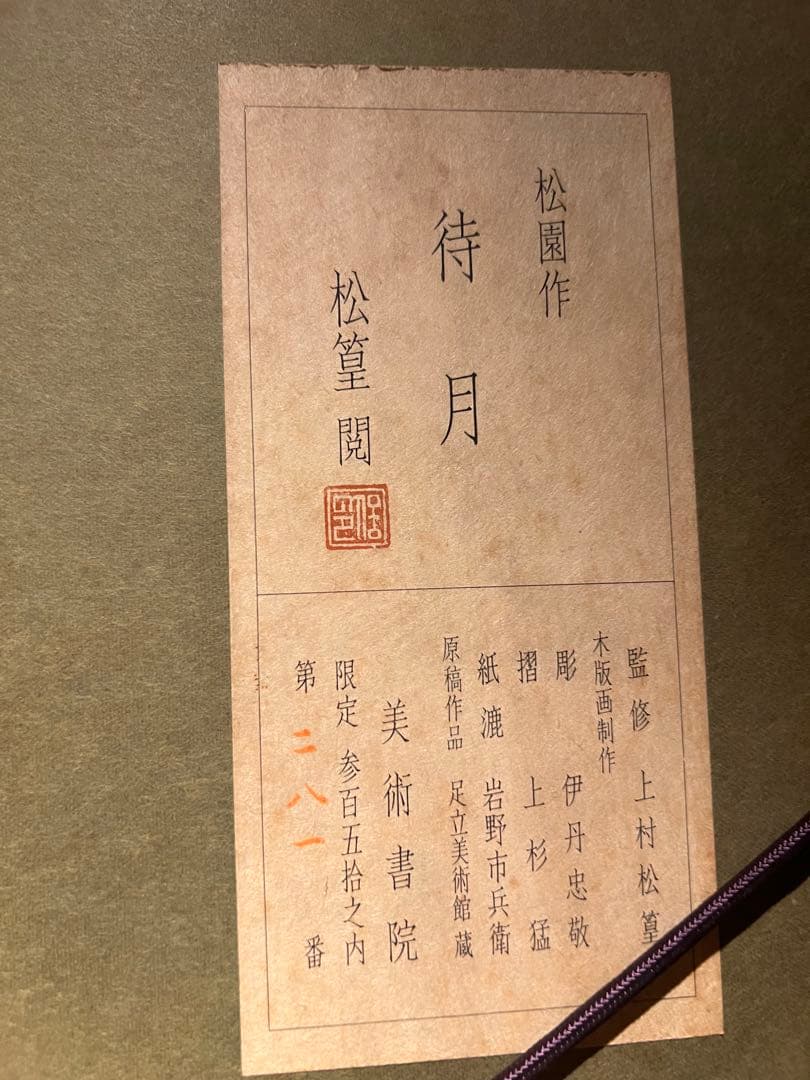 松園作
待月
松篁 閲
監修 上村松篁
木版画制作
彫 伊丹忠敬
摺 上杉猛
紙漉 岩野市兵衛
原稿作品 足立美術館蔵
美術書院
限定 参百五拾之内
第 二八一 番